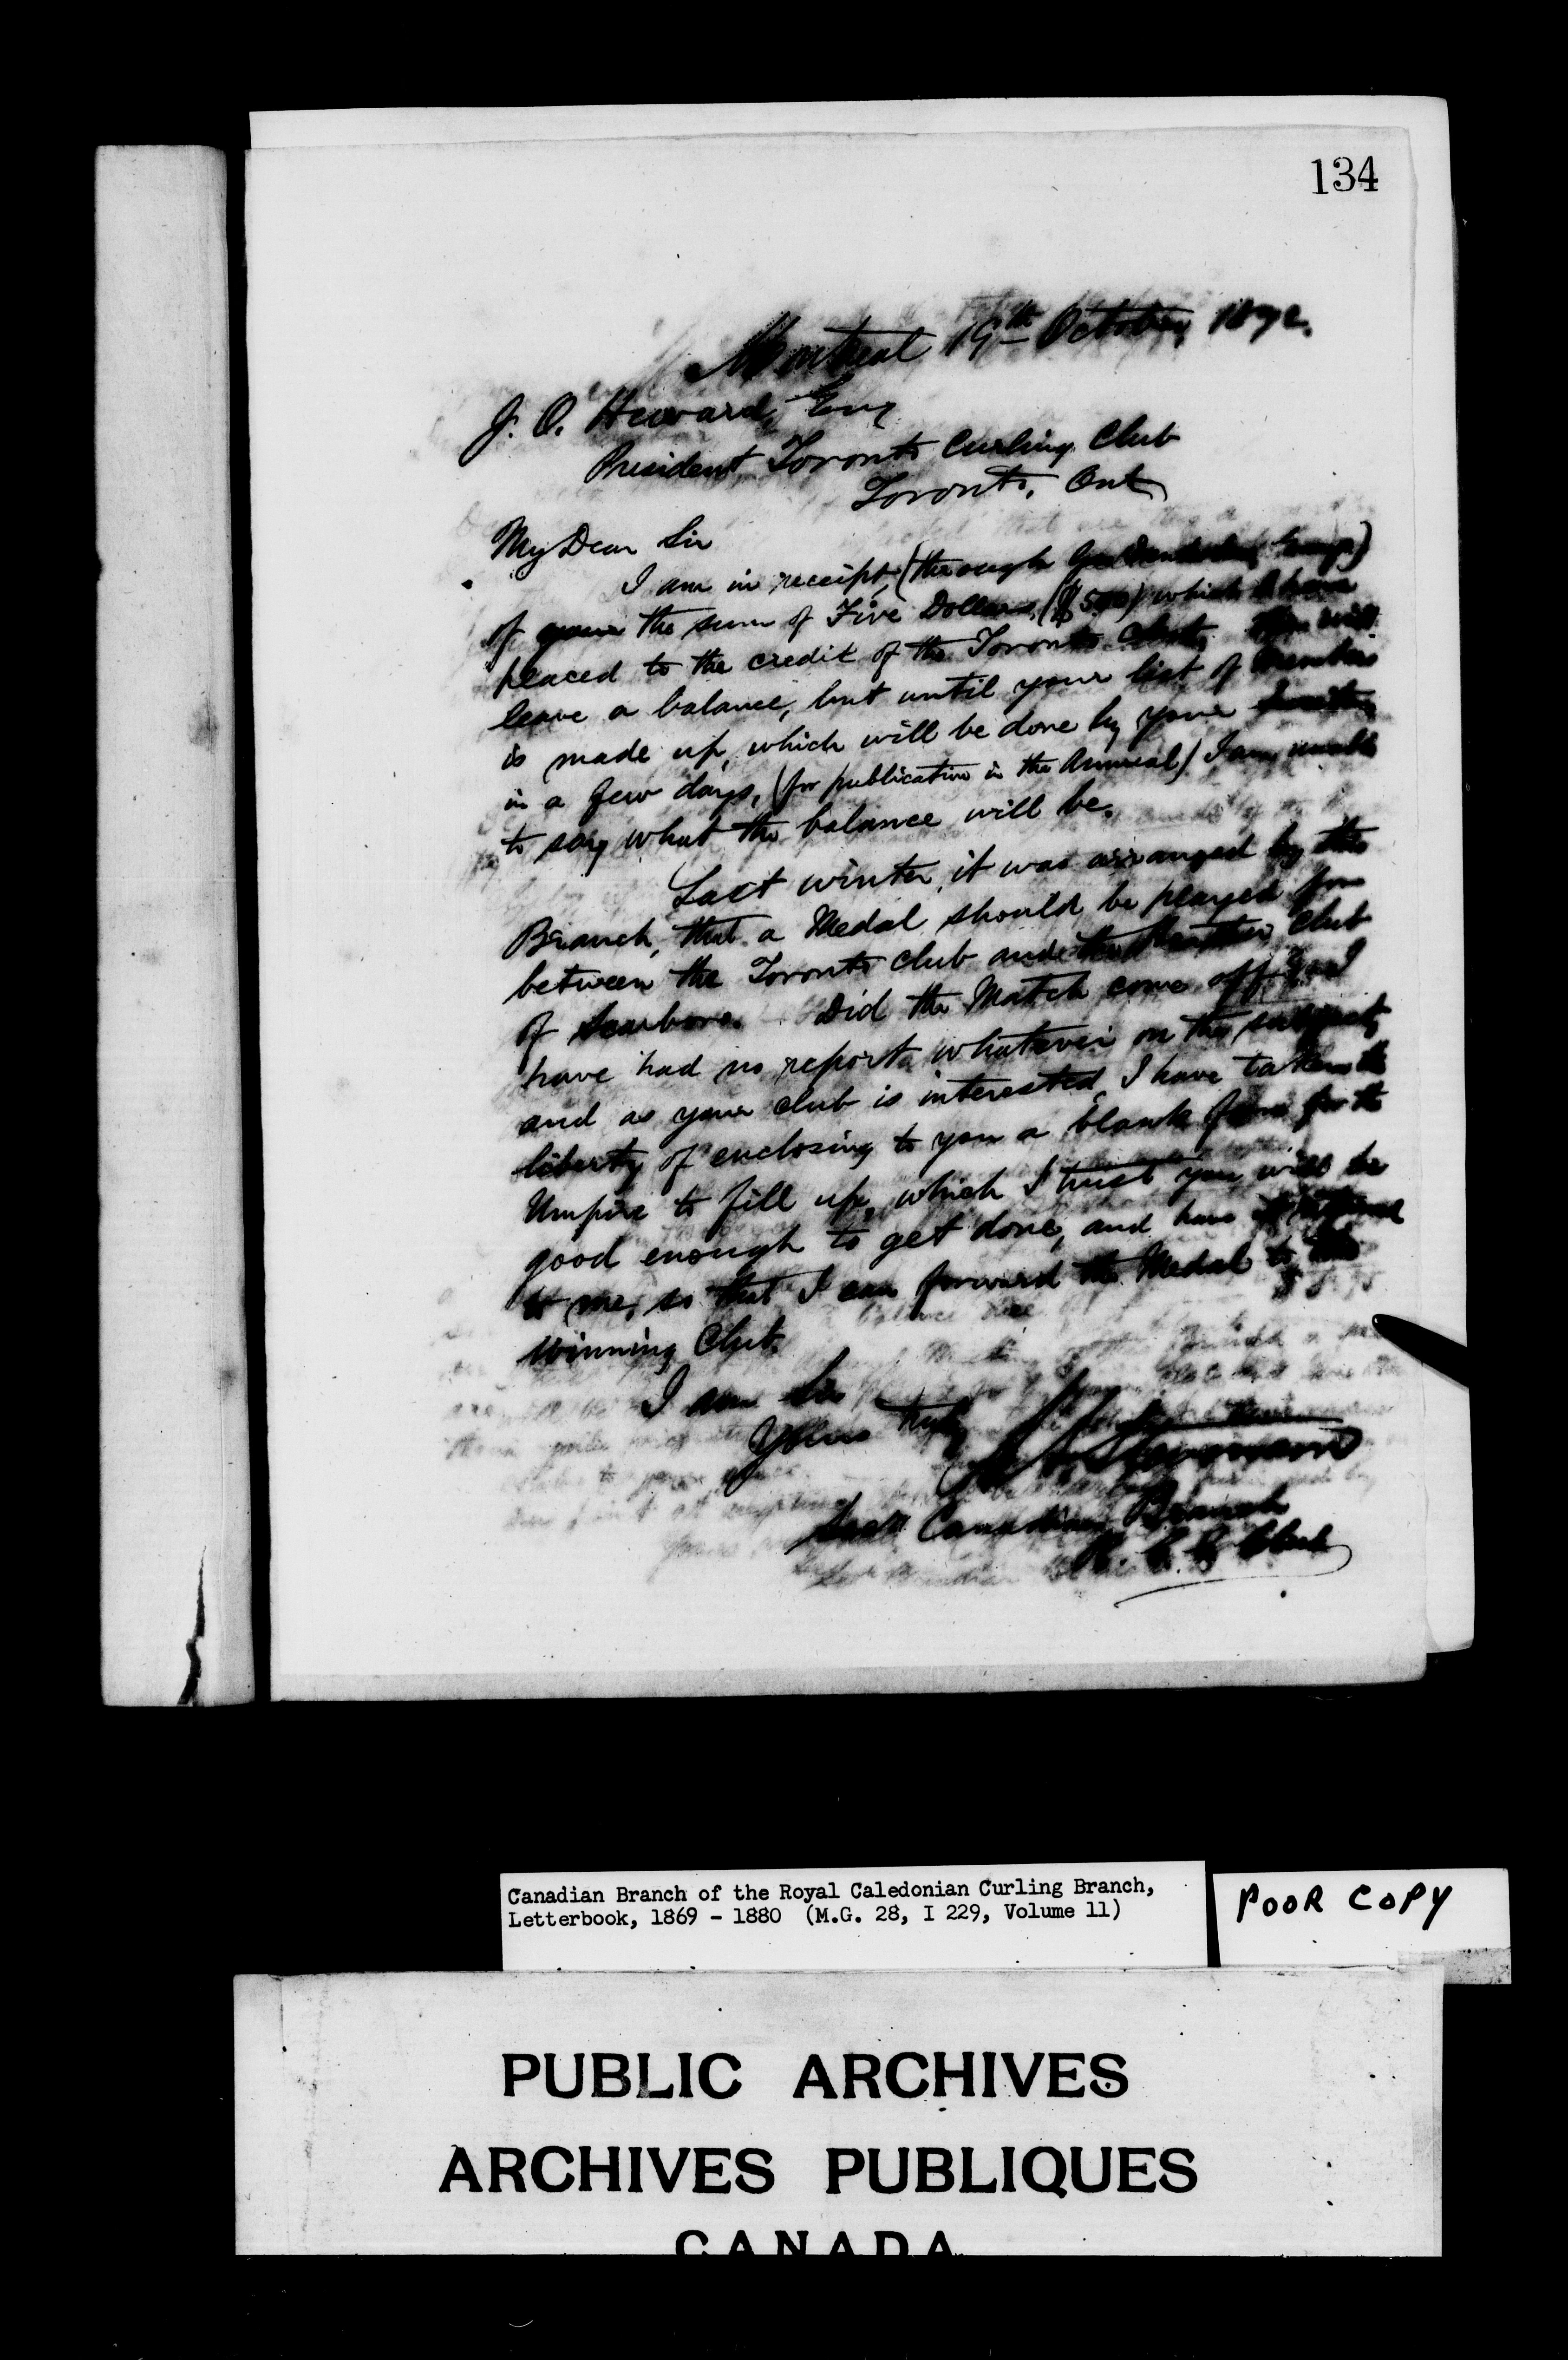 134
Montreal 19th October, 1872.
J. O. Heward, Esq
President Toronto Curling Club
Toronto, Ont
My Dear Sir
I am in receipt, (through
of your the sum of Five Dollars, ($5.00) which I have
placed to the credit of the Toronto Club. This will
leave a balance, but until your list of Members
is made up, which will be done by your
in a few days, (for publication in the Annual) I am unable
to say what the balance will be.
Last winter, it was arranged by this
Branch, that a Medal should be played for
between the Toronto Club and the Club
of Scarboro. Did the Match come off? I
have had no report whatever on the subject,
and as your club is interested, I have taken the
liberty of enclosing to you a blank form for the
Umpire to fill up, which I trust you will be
good enough to get done, and have it returned
to me, so that I can forward the Medal to the
Winning Club.
I am Sir
Yours truly
Secy Canadian Branch
R. C. C. Club
Canadian Branch of the Royal Caledonian Curling Branch,
Letterbook, 1869 - 1880 (M.G. 28, I 229, Volume 11)
POOR COPY
PUBLIC ARCHIVES
ARCHIVES PUBLIQUES
CANADA